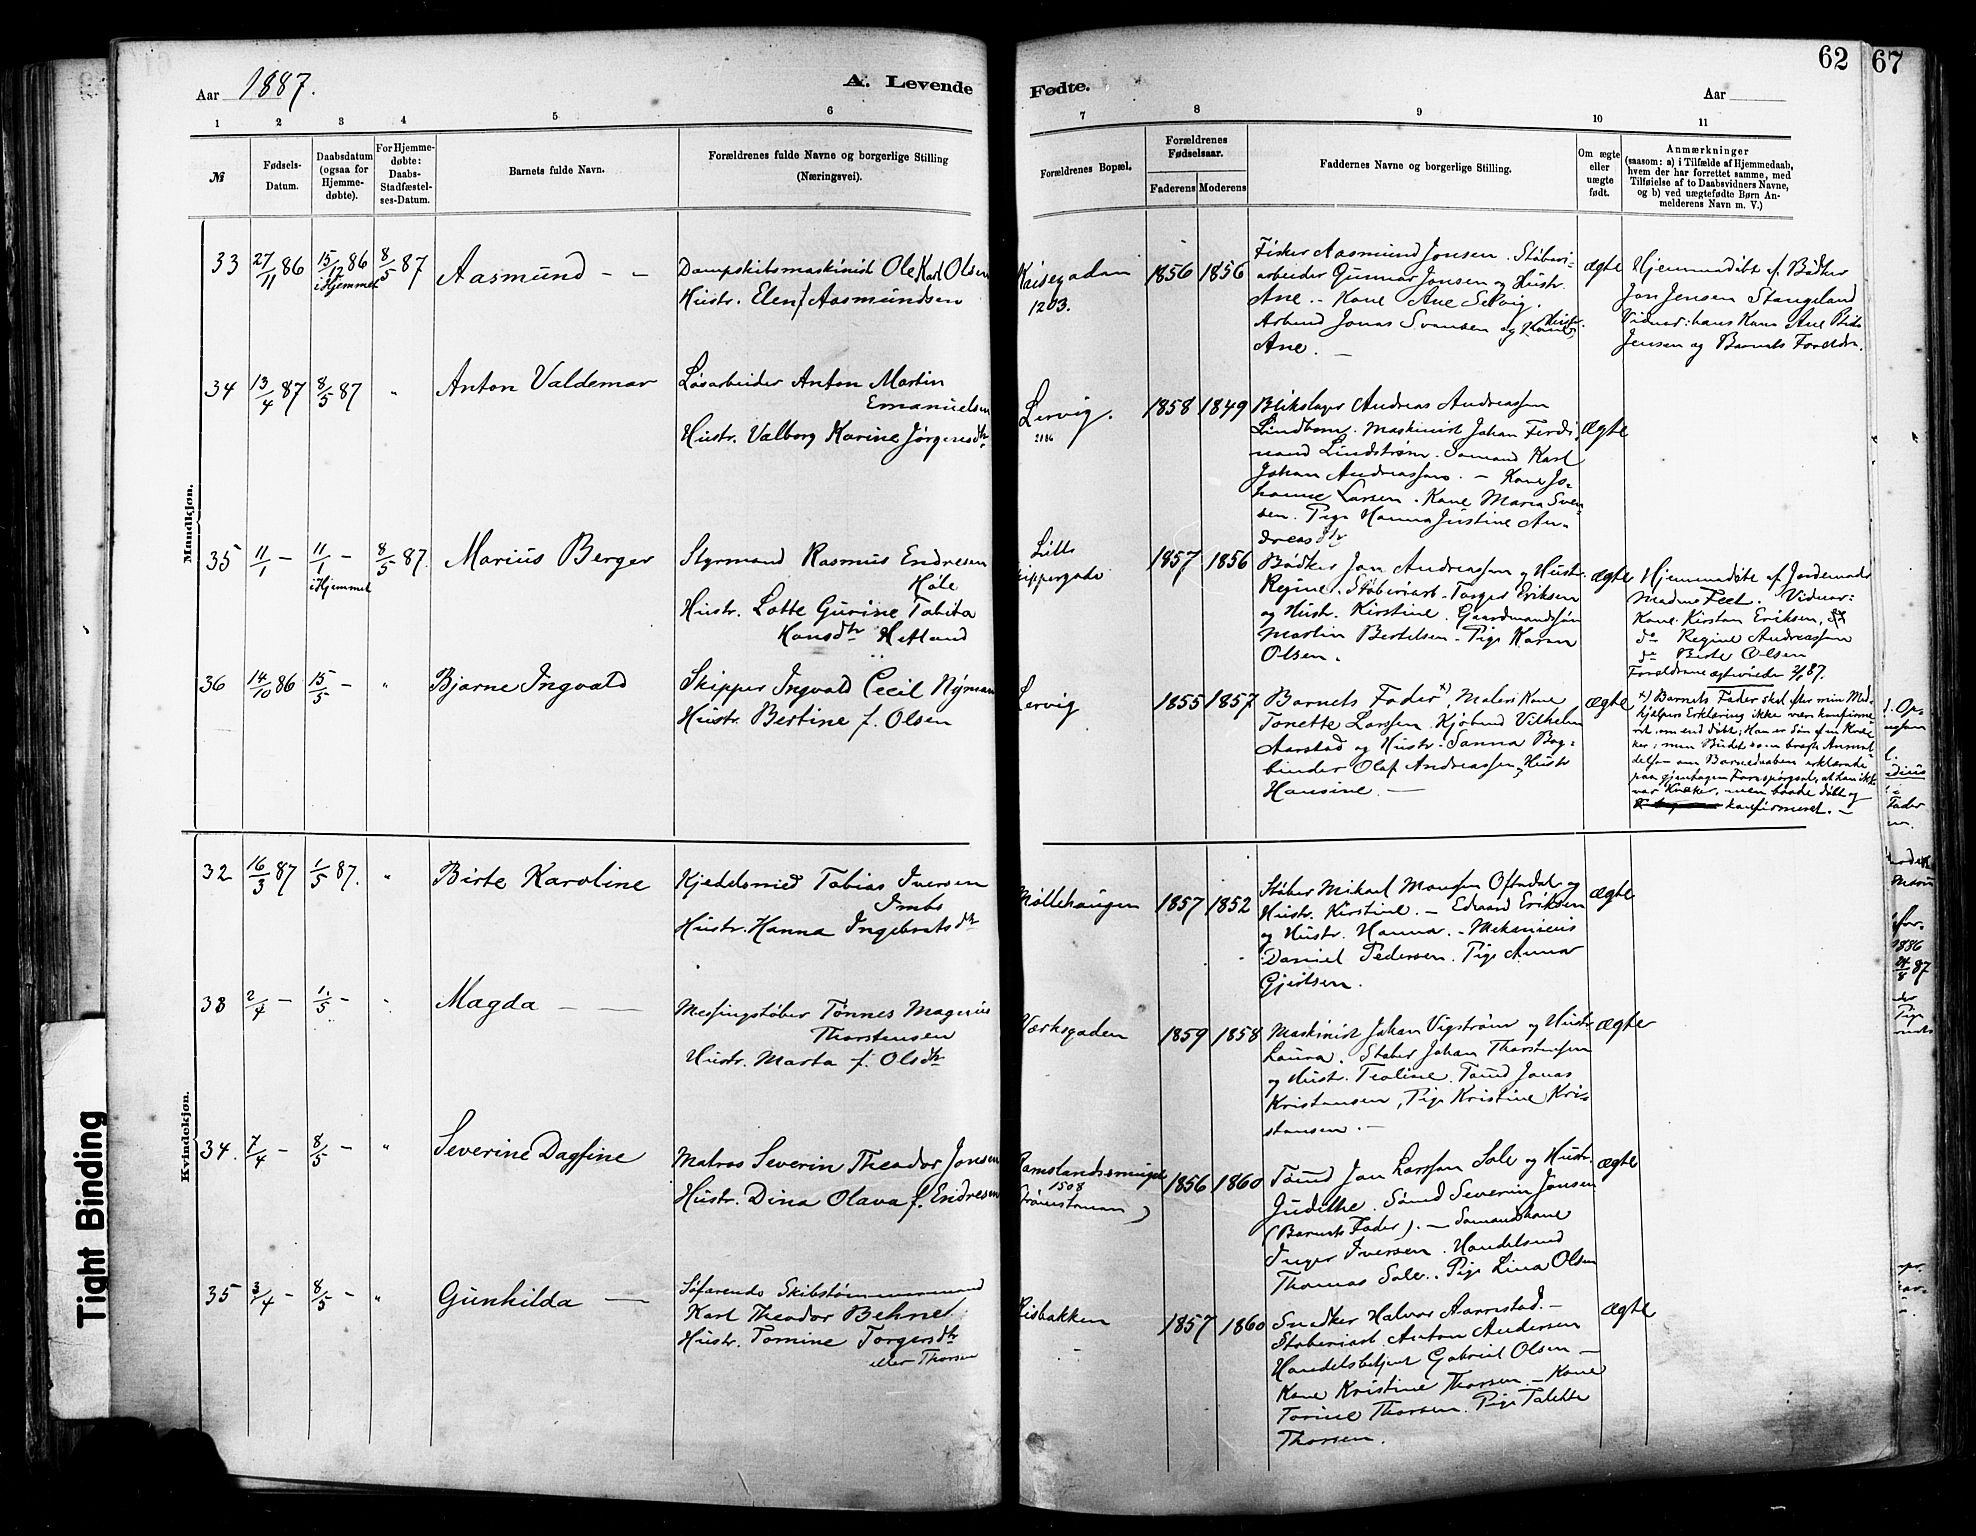 Aar 1887.
A. Levende
1 2 3 4 5 6
№
Fødsels-Datum.
Daabsdatum (ogsaa for Hjemme-døbte).
For Hjemme-døbte: Daabs-Stadfæstel-ses-Datum.
Barnets fulde Navn.
Forældrenes fulde Navne og borgerlige Stilling
(Næringsvei).
Mandkjøn.
33 27/11 86 15/12 86 i Hjemmet 8/5 87 Aasmund - -
Dampskibsmaskinist Ole Karl Olsen
Hustr. Elen f. Aasmundsen
34 13/4 87 8/5 87 " Anton Valdemar
Løsarbeider Anton Martin
Emanuelsen
Hustr. Valborg Karine Jørgensdtr.
35 11/1 - 11/1 - i Hjemmet 8/5 87. Marius Berger
Styrmand Rasmus Endresen
Høle
Hustr. Lotte Gurine Tobita
Hansdtr Hetland
36 14/10 86 15/5 - " Bjarne Ingvald
Skipper Ingvald Cecil Nyman
Hustr. Bertine f. Olsen
Kvindekjøn.
32 16/3 87 1/5 87. " Birte Karoline
Kjedelsmed Tobias Iversen
Imbs
Hustr. Hanna Ingebretsdtr
38 2/4 - 1/5 - Magda - -
Messingstøber Tønnes Magnus
Thorstensen
Hustr. Marta f. Olsdtr
34. 7/4 - 8/5 - " Severine Dagfine
Matros Severin Theodor Jonsen
Hustr. Dina Olava f. Endresen
35 3/4 - 8/5 - " Gunhilda -
Søfarende Skibstømmermand
Karl Theodor Behnet
Hustr. Tomine Torgersdtr
eller Thorsen
Tight Binding
62
67
Fødte.
Aar
7 8 9 10 11
Forældrenes Bopæl.
Forældrenes Fødselsaar.
Faderens Moderens
Faddernes Navne og borgerlige Stilling.
Om ægte eller uægte født.
Anmærkninger
(saasom: a) i Tilfælde af Hjemmedaab,
hvem der har forrettet samme, med
Tilføielse af to Daabsvidners Navne,
og b) ved uægtefødte Børn An-
melderens Navn m. V.)
Kaisegaden
1203.
1856 1856
Fisker Aasmund Jonsen. Støberi-
arbeider Gunnar Jonsen og Hustr.
Ane. - Kone Ane Selvig.
Arbmd Jonas Svensen og Hustr.
Ane. -
ægte
Hjemmedøbt af Bødker
Jon Jensen Stangeland
Vidner: hans Kone Ane
Jensen og Barnets Forældre.
Lervig.
1858 1849
Blikslager Andreas Andreassen
Lindbom. Maskinist Johan Ferdi
nand Lindstrøm. Sømand Karl
Johan Andreassen. - Kone Jo-
hanne Larsen. Kone Maria Sven
sen. Pige Hanna Justine An-
dreasdtr
ægte
Lille
Skippergade
1857 1856
Bødker Jon Andreassen og Hustr.
Regine. Støberiarb. Torger Eriksen
og Hustr. Kirstine. Gaardmandssøn
Martin Bertelsen. Pige Karen
Olsen.
ægte
Hjemmedøbt af Jordemoder
Madme Feet. Vidner:
Kone Kirsten Eriksen,
do Regine Andreassen
do Birte Olsen
Forældrene
Lervig
1855 1857
Barnets Fader x), Malers Kone
Tonette Larsen. Kjøbmd Vilhelm
Aarstad og Hustr. Sanna Bog-
binder Olaf Andreassen, Hustr
Hansine. -
ægte
x) Barnets Fader skal efter min Med-
hjælpers Erklæring ikke være konfirme-
ret, om end døbt; Han er Søn af en Kvæ-
ker; men Budet som bragte Anmel-
delsen om Barnedaaben erklærede
paa gjentagen Forespørgsel, at han ikke
var Kvæker, men baade døbt og
konfirmeret. -
Møllehaugen
1857 1852
Støber Mikael Monsen Oftedal og
Hustr. Kirstine. - Edvard Eriksen
og Hustr. Hanna. - Mekanicus
Daniel Pedersen. Pige Anna
Gjertsen.
ægte
Værksgaden
1859 1858
Maskinist Johan Vigstrøm og Hustr
Laura. Støber Johan Thorstensen
og Hustr. Teoline. Tømd Jonas
Kristensen, Pige Kristine Kris
stensen. -
ægte
Ramslandssmuget
1508
Strømstenen)
1856 1860
Tømd Jon Larssen Sole og Hustr.
Judithe. Sømd Severin Jonsen
(Barnets Fader). - Sømandskone
Inger Iversen. Handelsmd
Thomas Sole. Pige Lina Olsen
ægte
Risbakken
1857 1860
Snedker Halvor Aarrestad. -
Støberiarb. Anton Andersen
Handelsbetjent Gabriel Olsen -
Kone Kristine Thorsen. - Kone
Torine Thorsen. Pige Talette
Thorsen.
ægte